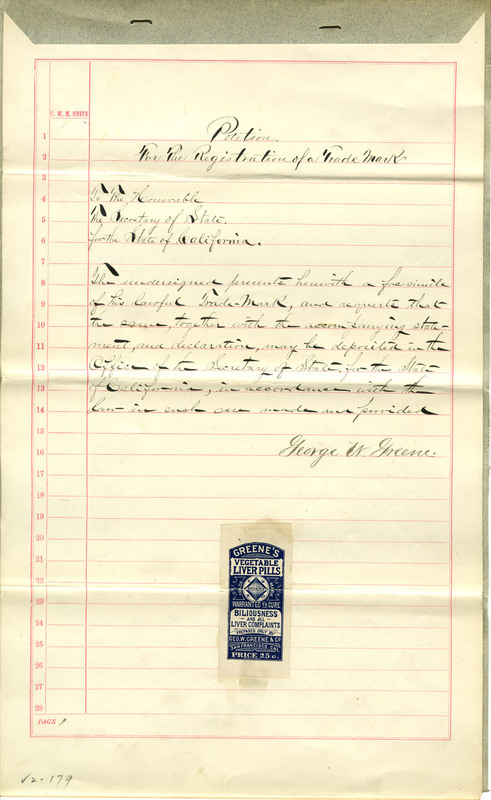 C. W. M. SMITH
1
2
3
4
5
6
7
8
9
10
11
12
13
14
15
16
17
18
19
20
21
22
23
24
25
26
27
28
Petition
For the Registration of a Trade Mark
To the Honorable
The Secretary of State.
for the State of California.
The undersigned presents herewith a fac-simile
of his lawful Trade-Mark, and requests that
the same, together with the accompanying state-
ment, and declaration, may be deposited in the
Office of the Secretary of State, for the State
of California, in accordance with the
law in such case made and provided
George W. Greene.
GREENE'S
VEGETABLE
LIVER PILLS
WARRANTED TO CURE
BILIOUSNESS
AND ALL
LIVER COMPLAINTS
PREPARED ONLY BY
GEO. W. GREENE & CO
SAN FRANCISCO, CAL.
PRICE 25 c.
PAGE 1
V2-179